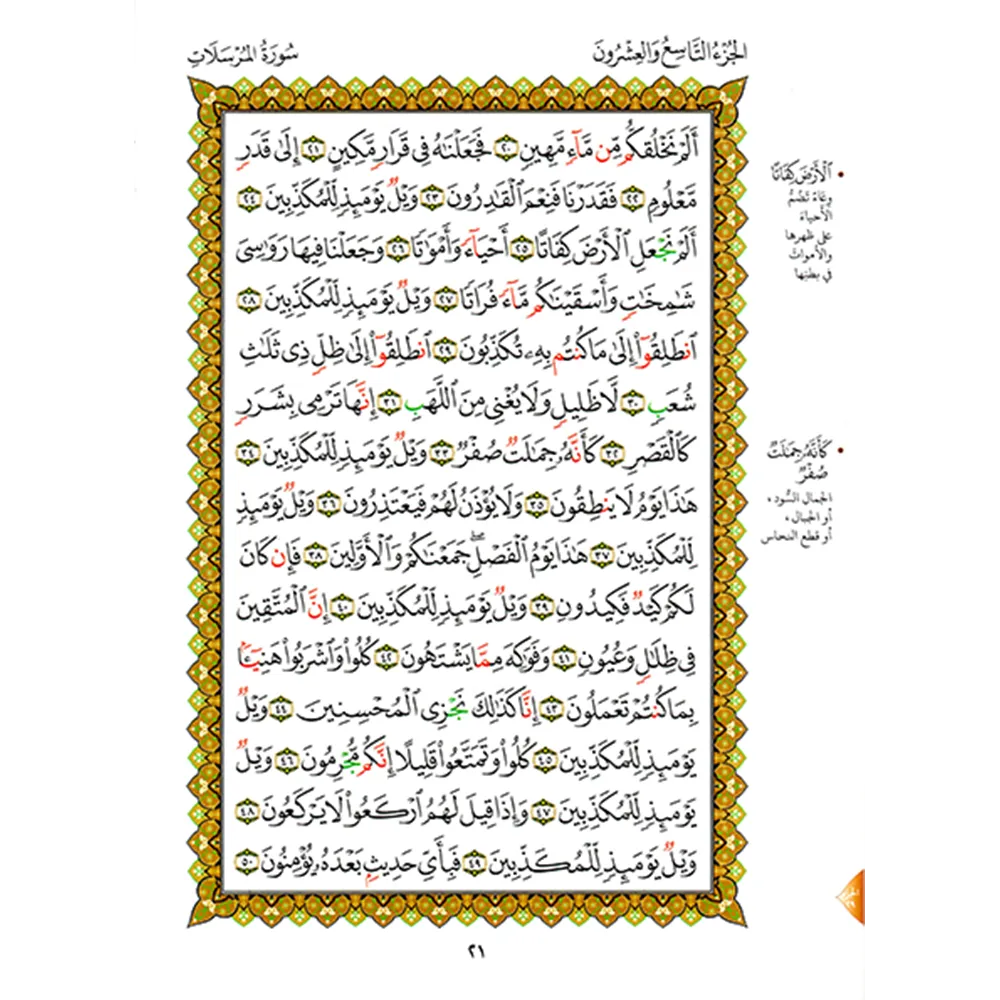 الجُزْءُ التَّاسِعُ وَالعِشْرُونَ
سُورَةُ المُرْسَلَاتِ
أَلَمْ نَخْلُقكُّم مِّن مَّآءٍ مَّهِينٍ ٢٠ فَجَعَلْنَٰهُ فِى قَرَارٍ مَّكِينٍ ٢١ إِلَىٰ قَدَرٍ
مَّعْلُومٍ ٢٢ فَقَدَرْنَا فَنِعْمَ ٱلْقَٰدِرُونَ ٢٣ وَيْلٌ يَوْمَئِذٍ لِّلْمُكَذِّبِينَ ٢٤
أَلَمْ نَجْعَلِ ٱلْأَرْضَ كِفَاتًا ٢٥ أَحْيَآءً وَأَمْوَٰتًا ٢٦ وَجَعَلْنَا فِيهَا رَوَٰسِىَ
شَٰمِخَٰتٍ وَأَسْقَيْنَٰكُم مَّآءً فُرَاتًا ٢٧ وَيْلٌ يَوْمَئِذٍ لِّلْمُكَذِّبِينَ ٢٨
ٱنطَلِقُوٓا۟ إِلَىٰ مَا كُنتُم بِهِۦ تُكَذِّبُونَ ٢٩ ٱنطَلِقُوٓا۟ إِلَىٰ ظِلٍّ ذِى ثَلَٰثِ
شُعَبٍ ٣٠ لَّا ظَلِيلٍ وَلَا يُغْنِى مِنَ ٱللَّهَبِ ٣١ إِنَّهَا تَرْمِى بِشَرَرٍ
كَٱلْقَصْرِ ٣٢ كَأَنَّهُۥ جِمَٰلَتٌ صُفْرٌ ٣٣ وَيْلٌ يَوْمَئِذٍ لِّلْمُكَذِّبِينَ ٣٤
هَٰذَا يَوْمُ لَا يَنطِقُونَ ٣٥ وَلَا يُؤْذَنُ لَهُمْ فَيَعْتَذِرُونَ ٣٦ وَيْلٌ يَوْمَئِذٍ
لِّلْمُكَذِّبِينَ ٣٧ هَٰذَا يَوْمُ ٱلْفَصْلِ ۖ جَمَعْنَٰكُمْ وَٱلْأَوَّلِينَ ٣٨ فَإِن كَانَ
لَكُمْ كَيْدٌ فَكِيدُونِ ٣٩ وَيْلٌ يَوْمَئِذٍ لِّلْمُكَذِّبِينَ ٤٠ إِنَّ ٱلْمُتَّقِينَ
فِى ظِلَٰلٍ وَعُيُونٍ ٤١ وَفَوَٰكِهَ مِمَّا يَشْتَهُونَ ٤٢ كُلُوا۟ وَٱشْرَبُوا۟ هَنِيٓـًٔۢا
بِمَا كُنتُمْ تَعْمَلُونَ ٤٣ إِنَّا كَذَٰلِكَ نَجْزِى ٱلْمُحْسِنِينَ ٤٤ وَيْلٌ
يَوْمَئِذٍ لِّلْمُكَذِّبِينَ ٤٥ كُلُوا۟ وَتَمَتَّعُوا۟ قَلِيلًا إِنَّكُم مُّجْرِمُونَ ٤٦ وَيْلٌ
يَوْمَئِذٍ لِّلْمُكَذِّبِينَ ٤٧ وَإِذَا قِيلَ لَهُمُ ٱرْكَعُوا۟ لَا يَرْكَعُونَ ٤٨
وَيْلٌ يَوْمَئِذٍ لِّلْمُكَذِّبِينَ ٤٩ فَبِأَىِّ حَدِيثٍۭ بَعْدَهُۥ يُؤْمِنُونَ ٥٠
• ٱلْأَرْضَ كِفَاتًا
وِعَاءً تَضُمُّ
الأحياءَ
على ظهرها
والأمواتَ
في بطنها
• كَأَنَّهُۥ جِمَٰلَتٌ
صُفْرٌ
الجمال السُّود،
أو الحبال،
أو قطع النحاس
٢١